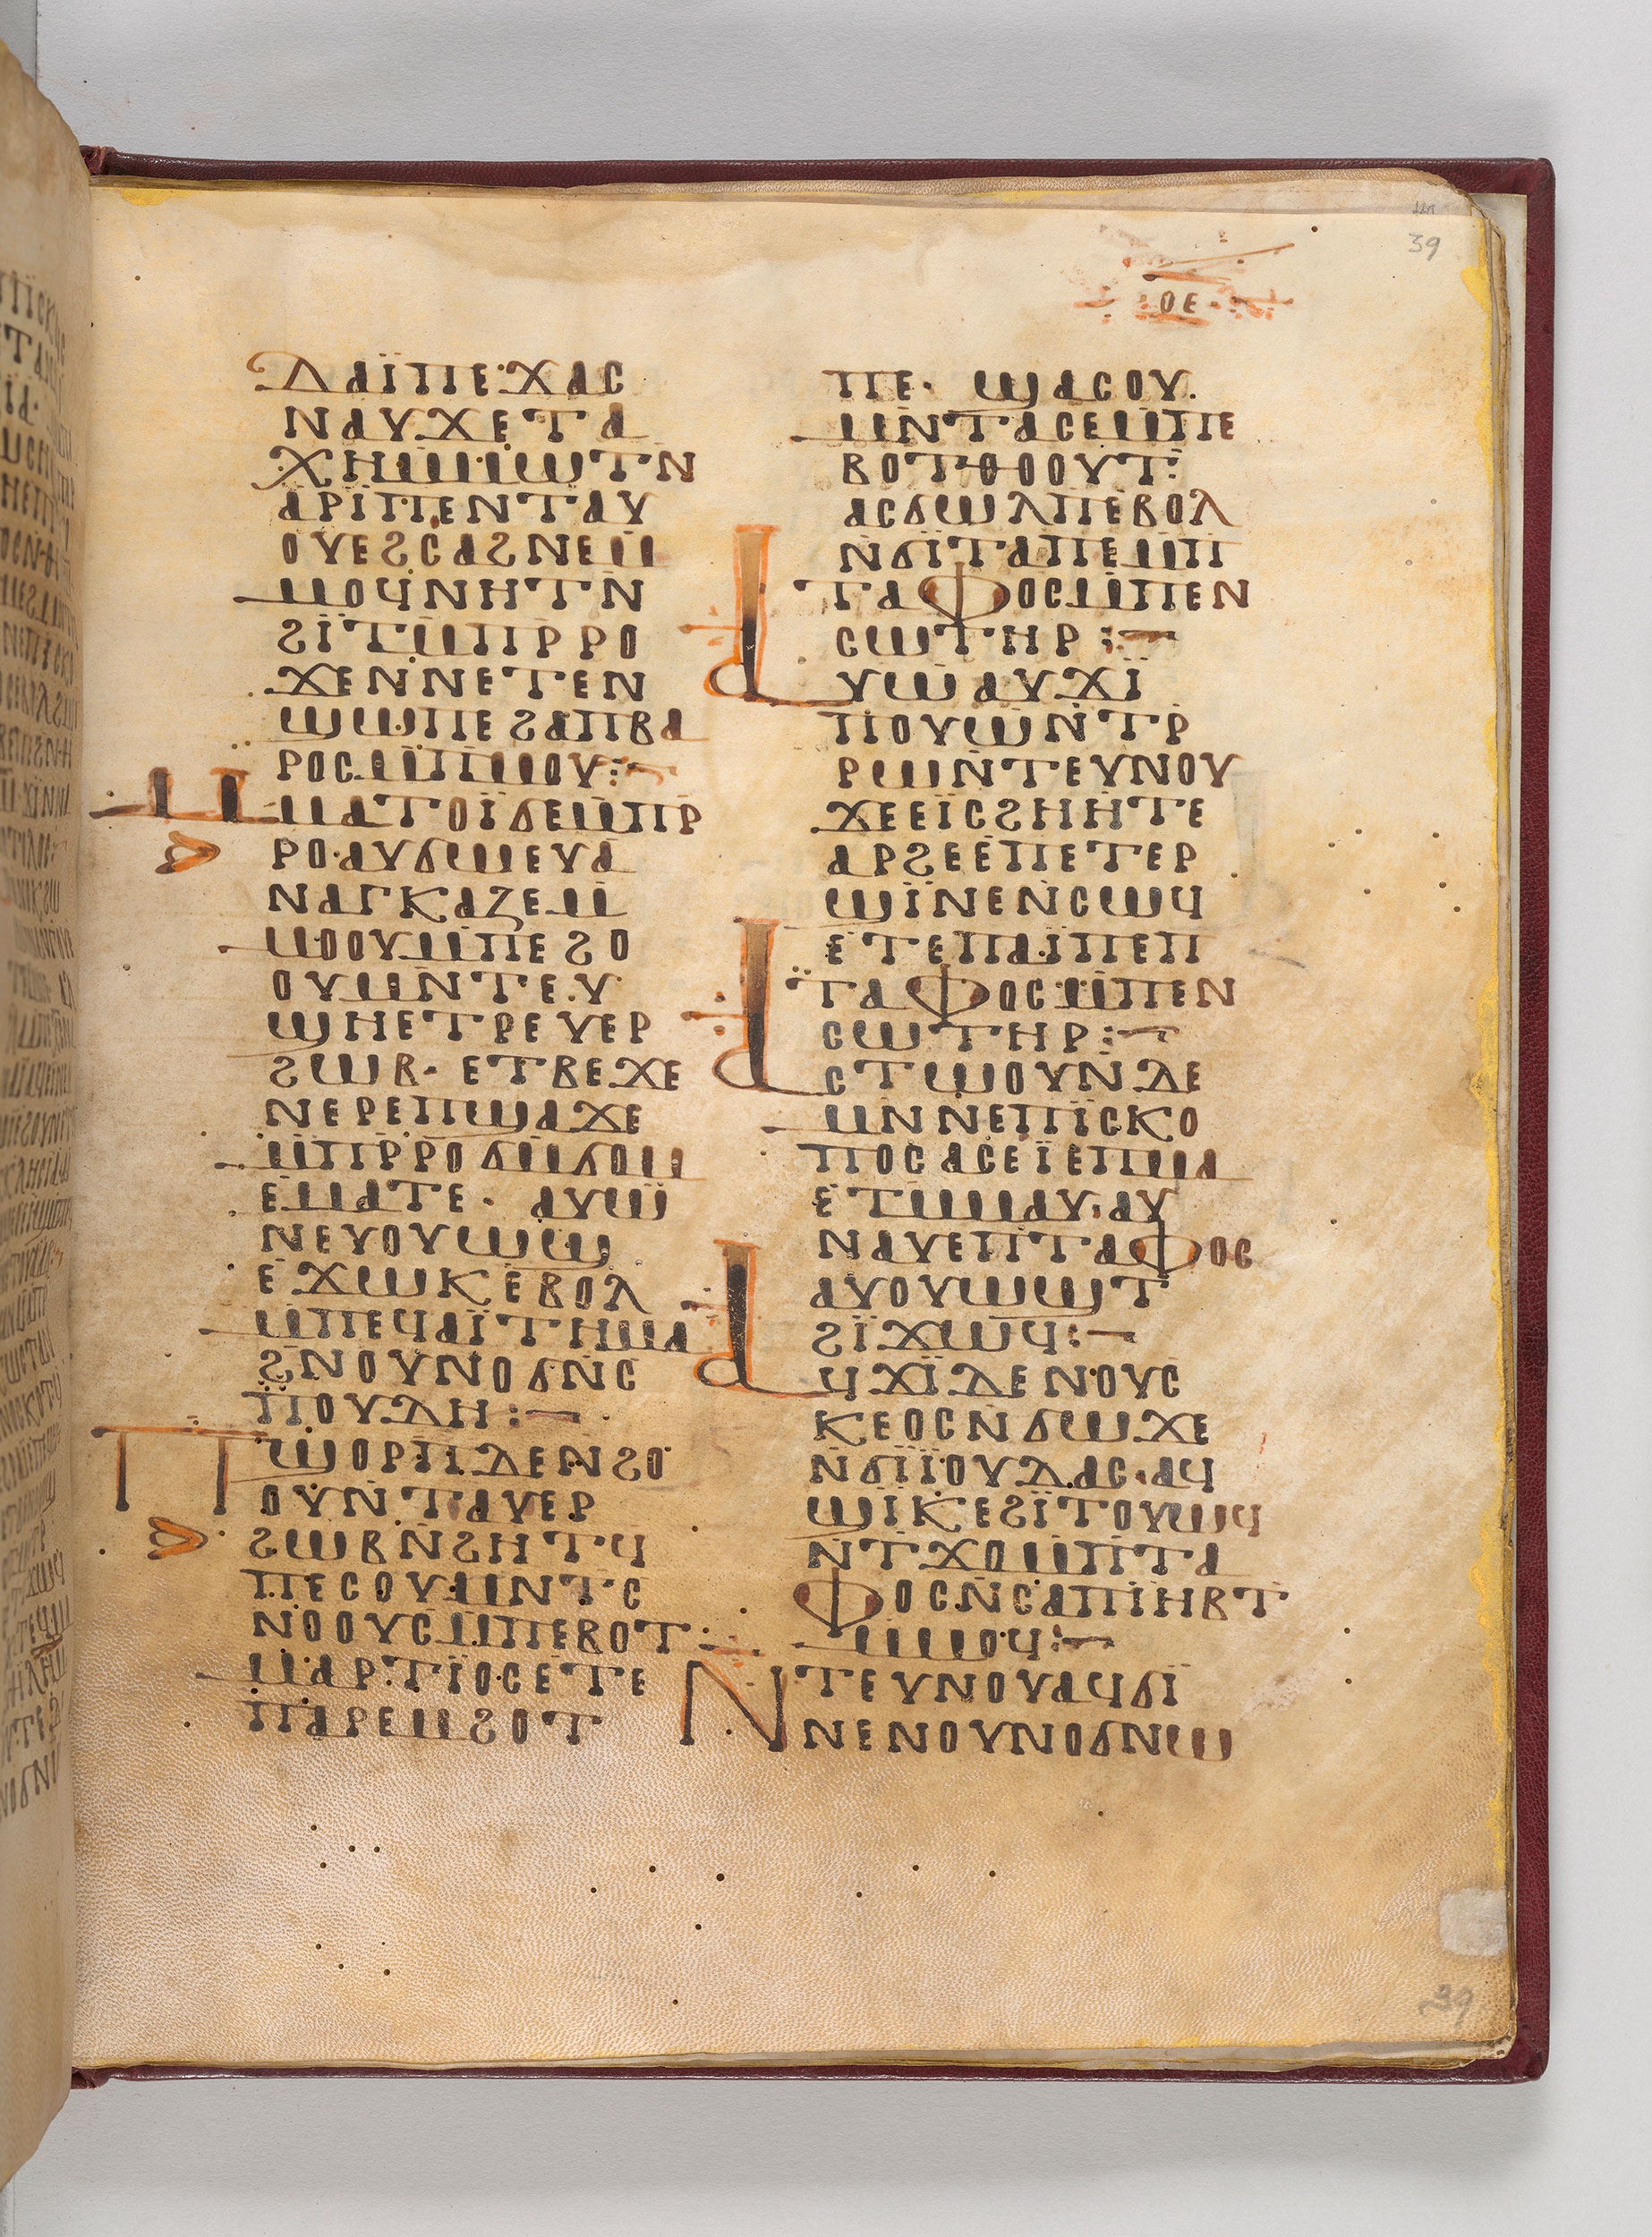 ⲟⲉ
39
ⲇⲁⲓ̈ⲡⲉϫⲁⲥ
ⲛⲁⲩϫⲉⲧⲁ
ϫⲏⲙⲙⲱⲧⲛ
ⲁⲣⲓ̈ⲡⲉⲛⲧⲁⲩ
ⲟⲩⲉϩⲥⲁϩⲛⲉⲙ
ⲙⲟϥⲛⲏⲧⲛ
ϩⲓ̈ⲧⲙⲡⲣⲣⲟ
ϫⲉⲛⲛⲉⲧⲉⲛ
ϣⲱⲡⲉϩⲁⲡⲃⲁ
ⲣⲟⲥⲙⲡⲙⲟⲩ:—
ⲙⲙⲁⲧⲟⲓ̈ϭⲉⲙⲡⲣ
ⲣⲟ·ⲁⲩϭⲱⲉⲩⲁ
ⲛⲁⲅⲕⲁⲍⲉⲙ
ⲙⲟⲟⲩⲙⲡⲉϩⲟ
ⲟⲩⲙⲛⲧⲉⲩ
ϣⲏⲉⲧⲣⲉⲩⲉⲣ
ϩⲱⲃ· ⲉⲧⲃⲉϫⲉ
ⲛⲉⲣⲉⲡϣⲁϫⲉ
ⲙⲡⲣⲣⲟϭⲙϭⲟⲙ
ⲉⲙⲁⲧⲉ· ⲁⲩⲱ
ⲛⲉⲩⲟⲩⲱϣ
ⲉϫⲱⲕⲉⲃⲟⲗ
ⲙⲡⲉϥⲁⲓ̈ⲧⲏⲙⲁ
ϩⲛⲟⲩⲛⲟϭⲛⲥ
ⲡⲟⲩⲇⲏ:—
ⲡϣⲟⲣⲡⲇⲉⲛϩⲟ
ⲟⲩⲛⲧⲁⲩⲉⲣ
ϩⲱⲃⲛϩⲏⲧϥ
ⲡⲉⲥⲟⲩⲙⲛⲧⲥ
ⲛⲟⲟⲩⲥⲙⲡⲉⲃⲟⲧ
ⲙⲁⲣⲧⲓ̈ⲟⲥⲉⲧⲉ
ⲡⲁⲣⲉⲙϩⲟⲧ
ⲡⲉ· ϣⲁⲥⲟⲩ
ⲙⲛⲧⲁⲥⲉⲙⲡⲉ
ⲃⲟⲧⲑⲟⲟⲩⲧ:
ⲁⲥϭⲱⲗⲡⲉⲃⲟⲗ
ⲛϭⲓ̈ⲧⲁⲡⲉⲙⲡ
ⲧⲁⲫⲟⲥⲙⲡⲉⲛ
ⲥⲱⲧⲏⲣ:—
ⲁⲩⲱⲁⲩϫⲓ̈
ⲡⲟⲩⲱⲛⲧⲣ
ⲣⲱⲛⲧⲉⲩⲛⲟⲩ
ϫⲉⲉⲓ̈ⲥϩⲏⲏⲧⲉ
ⲁⲣϩⲉⲉⲡⲉⲧⲉⲣ
ϣⲓ̈ⲛⲉⲛⲥⲱϥ
ⲉⲧⲉⲡⲁⲓ̈ⲡⲉⲡ
ⲧⲁⲫⲟⲥⲙⲡⲉⲛ
ⲥⲱⲧⲏⲣ:—
ⲁⲥⲧⲱⲟⲩⲛⲇⲉ
ⲙⲛⲛⲉⲡⲓ̈ⲥⲕⲟ
ⲡⲟⲥⲁⲥⲉⲓ̈ⲉⲡⲙⲁ
ⲉⲧⲙⲙⲁⲩ·ⲁⲩ
ⲛⲁⲩⲉⲡⲧⲁⲫⲟⲥ
ⲁⲩⲟⲩⲱϣⲧ
ϩⲓ̈ϫⲱϥ:—
ⲁϥϫⲓ̈ⲇⲉⲛⲟⲩⲥ
ⲕⲉⲟⲥⲛϭⲱϫⲉ
ⲛϭⲓ̈ⲓ̈ⲟⲩⲇⲁⲥ·ⲁϥ
ϣⲓ̈ⲕⲉϩⲓ̈ⲧⲟⲩⲱϥ
ⲛⲧϫⲟⲙⲡⲧⲁ
ⲫⲟⲥⲛⲥⲁⲡⲓⲏⲃⲧ
ⲙⲙⲟϥ:—
ⲛⲧⲉⲩⲛⲟⲩⲁϥϭⲓ̈
ⲛⲉⲛⲟⲩⲛⲟϭⲛϣ
39